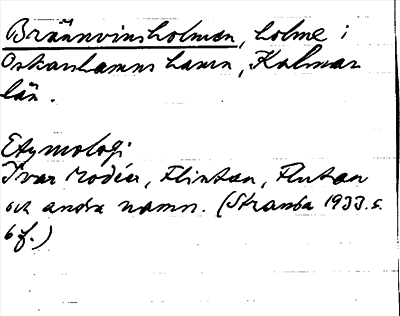 Brännvinsholmen, holme i
Oskarshamns hamn, Kalmar
län.
Etymologi
Ivar Modéer, Flintan, Flutan
och andra namn. (Stranda 1933 s.
6 f.)